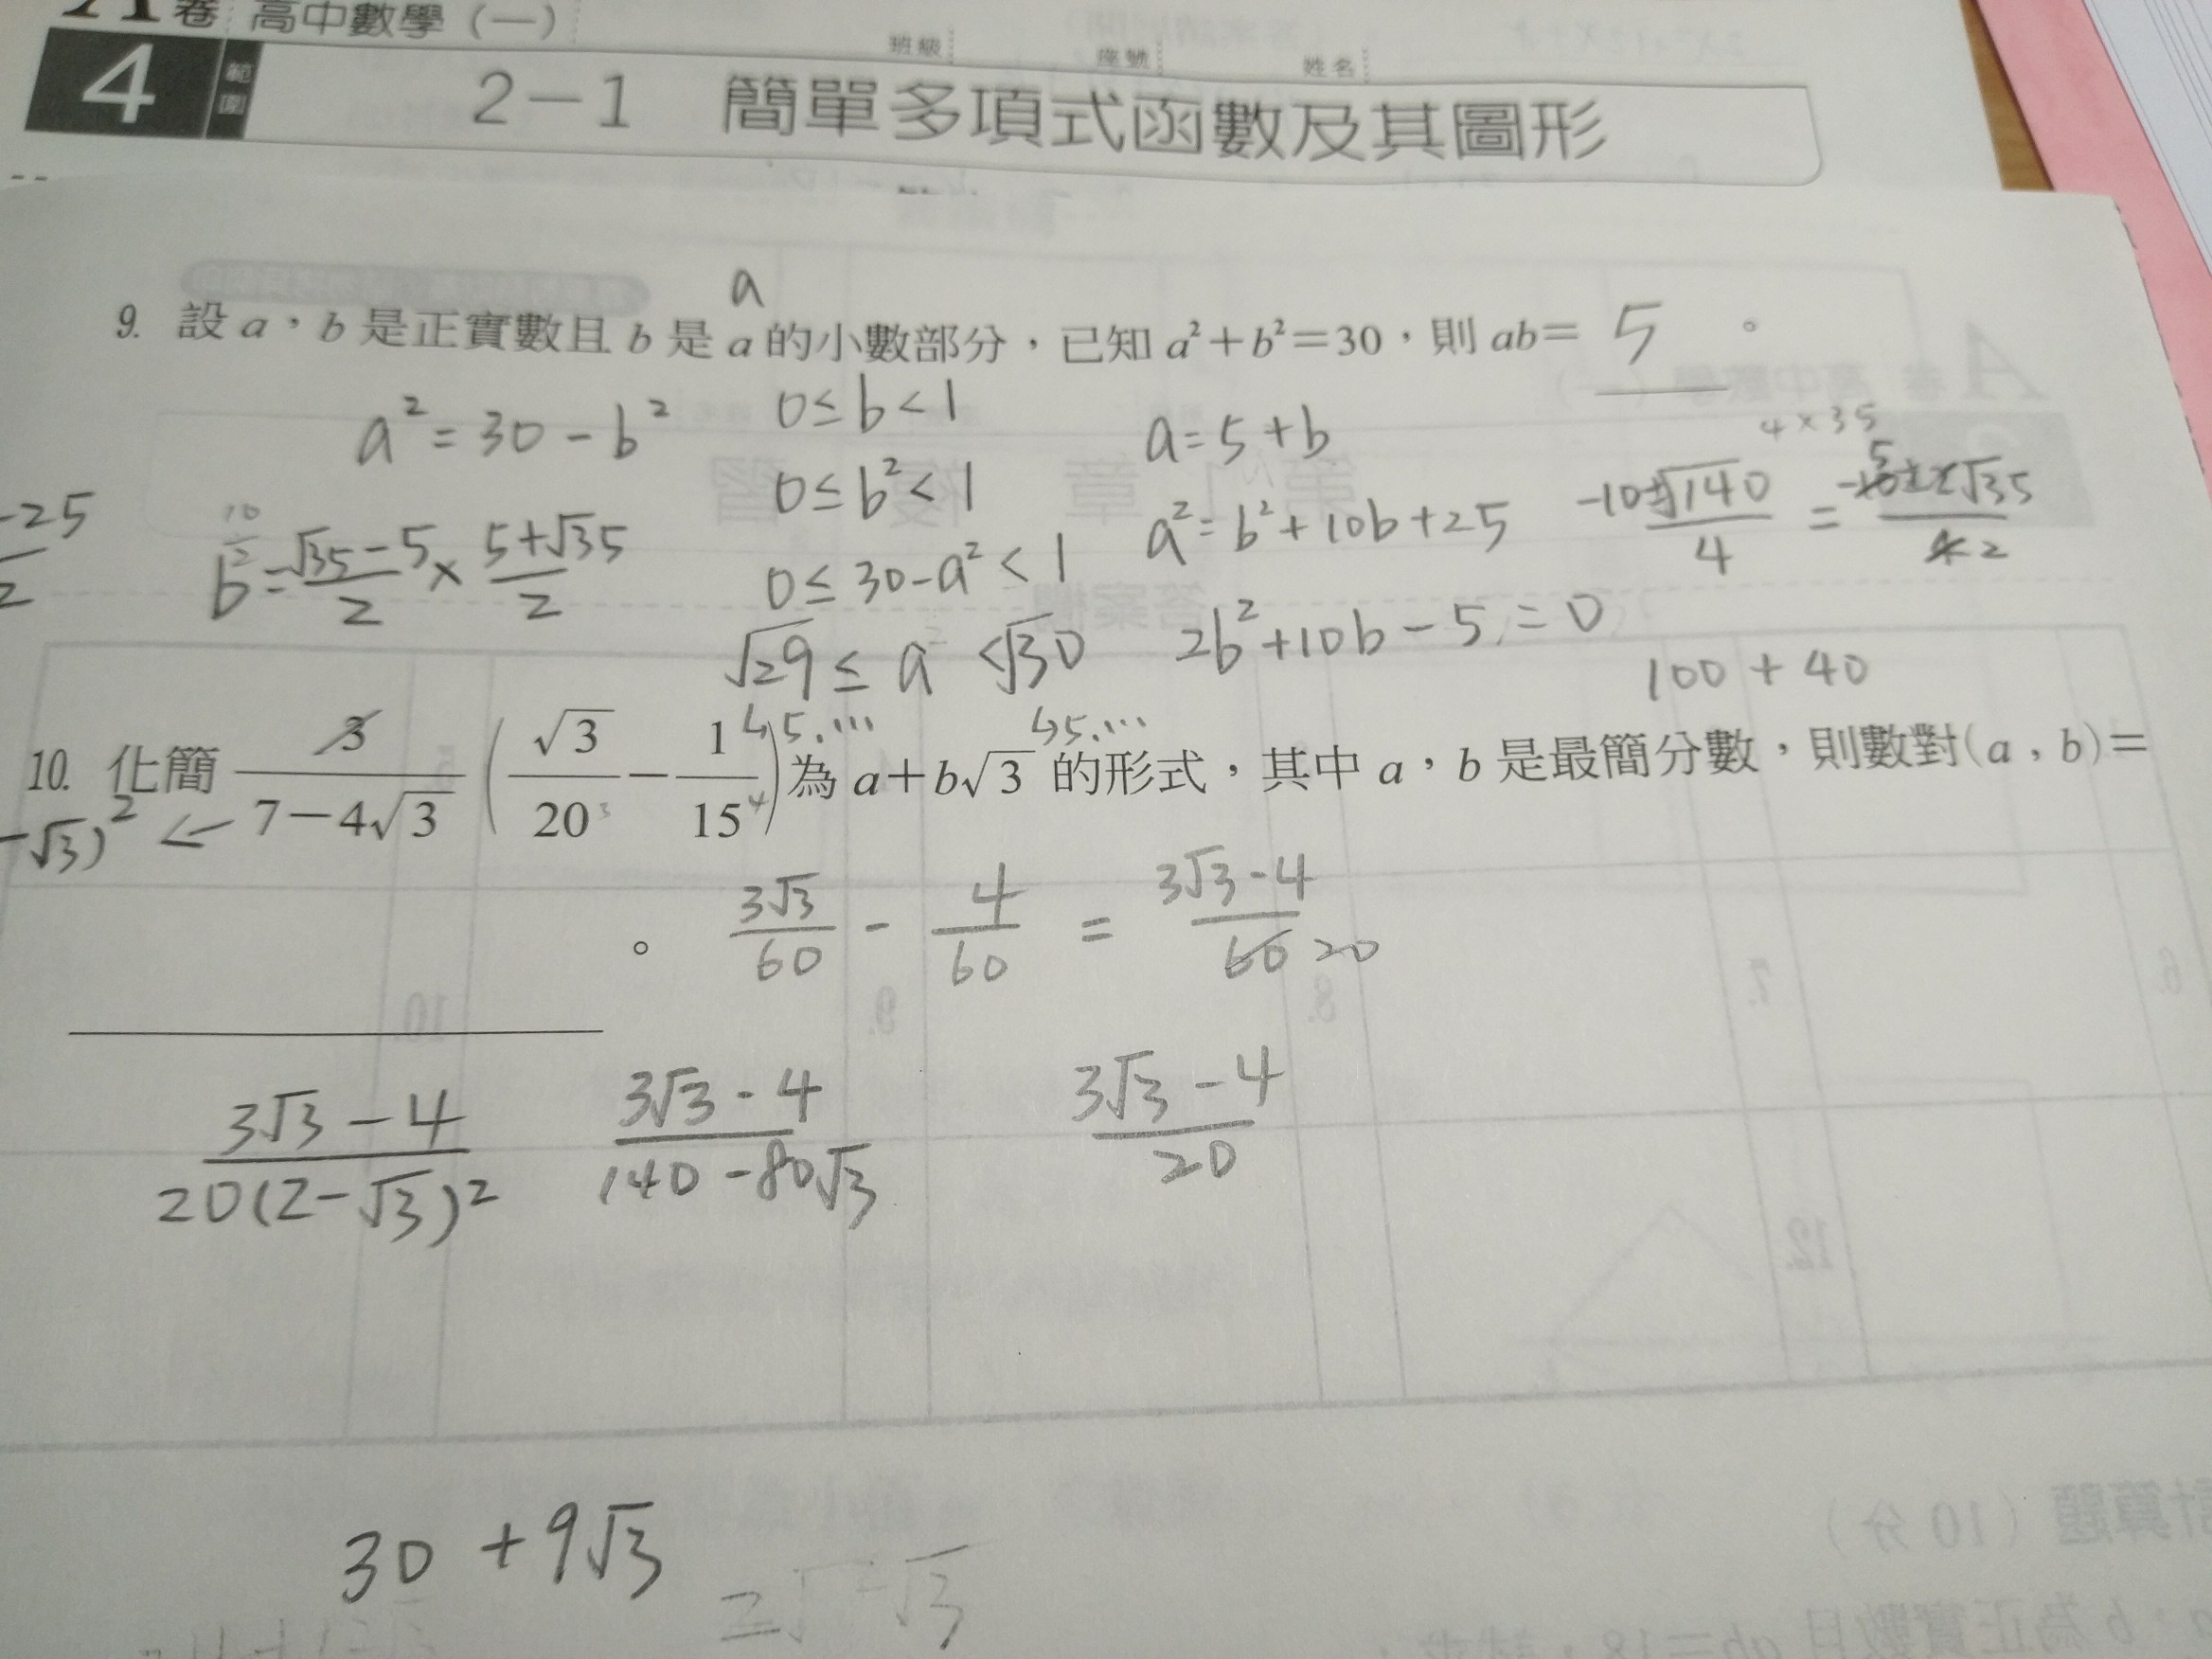 卷 高中數學（一）
4 範圍 2－1 簡單多項式函數及其圖形
班級 座號 姓名
a
9. 設 a，b 是正實數且 b 是 a 的小數部分，已知 a²＋b²＝30，則 ab＝ 5 。
a² = 30 - b²
0 ≤ b < 1
0 ≤ b² < 1
0 ≤ 30 - a² < 1
√29 ≤ a < √30
↳ 5.… ↳ 5.…
a = 5 + b
a² = b² + 10b + 25
2b² + 10b - 5 = 0
4 × 35
(-10±√140)/4 =
100 + 40
-25/2
b = (√35 - 5)/2 × (5 + √35)/2
10. 化簡 3/(7－4√3) (√3/20－1/15) 為 a＋b√3 的形式，其中 a，b 是最簡分數，則數對(a , b)＝
-√3)² ←
。
3√3/60 - 4/60 = (3√3 - 4)/60 20
(3√3 - 4)/(20(2-√3)²) (3√3 - 4)/(140 - 80√3) (3√3 - 4)/20
30 + 9√3